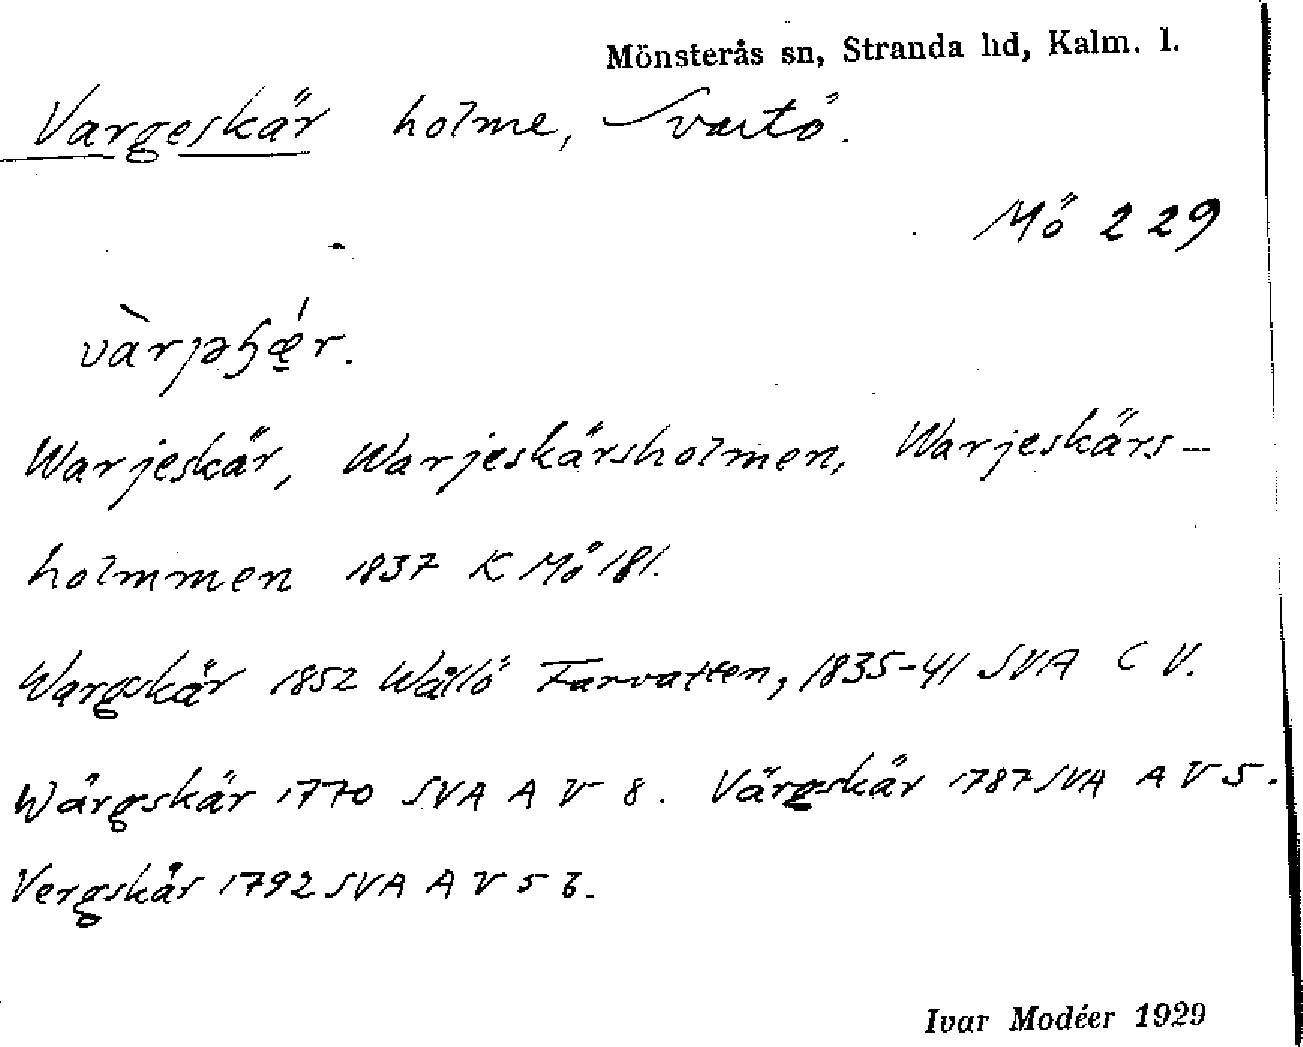 Mönsterås sn, Stranda hd, Kalm. l.
Vargeskär holme, Svartö.
Mö 229
vàrjəʃǽr.
Warjeskär, Warjeskärsholmen, Warjeskärs-
holmmen 1837 K Mö 181.
Wargskär 1852 Wållö Farvatten, 1835-41 SVA C V.
Wärgskär 1770 SVA A V 8. Värgskär 1787 SVA A V 5.
Vergskär 1792 SVA A V 5 b.
Ivar Modéer 1929